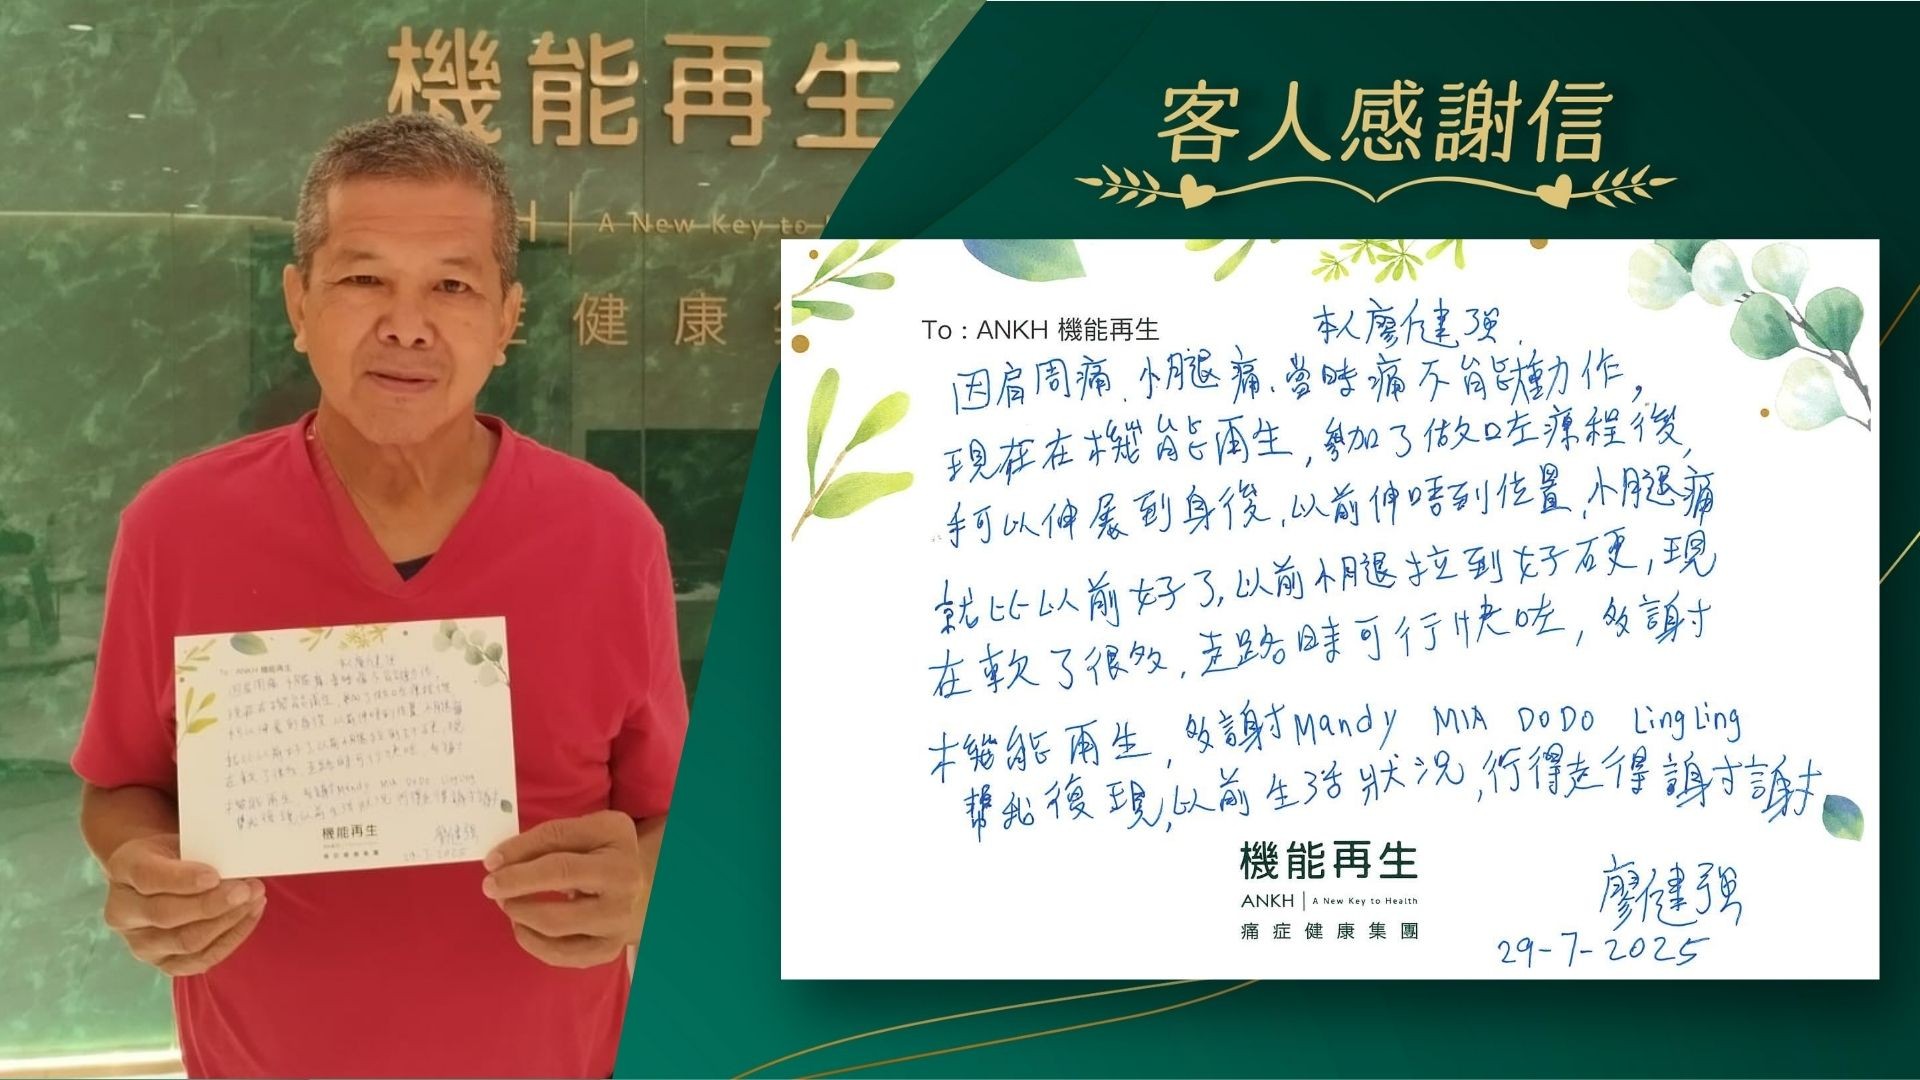 機能再生
A New Key to
健康
客人感謝信
To : ANKH 機能再生
本人廖健强.
因肩周痛.小腿痛.當時痛不能動作,
現在在機能再生,參加了做咗療程後,
手可以伸展到身後,以前伸唔到位置.小腿痛
就比以前好了,以前小腿拉到好硬,現
在軟了很多,走路時可行快咗,多謝
機能再生,多謝Mandy MIA DODO LingLing
幫我復現,以前生活狀況,行得走得謝謝
機能再生
ANKH | A New Key to Health
痛症健康集團
廖健强
29-7-2025